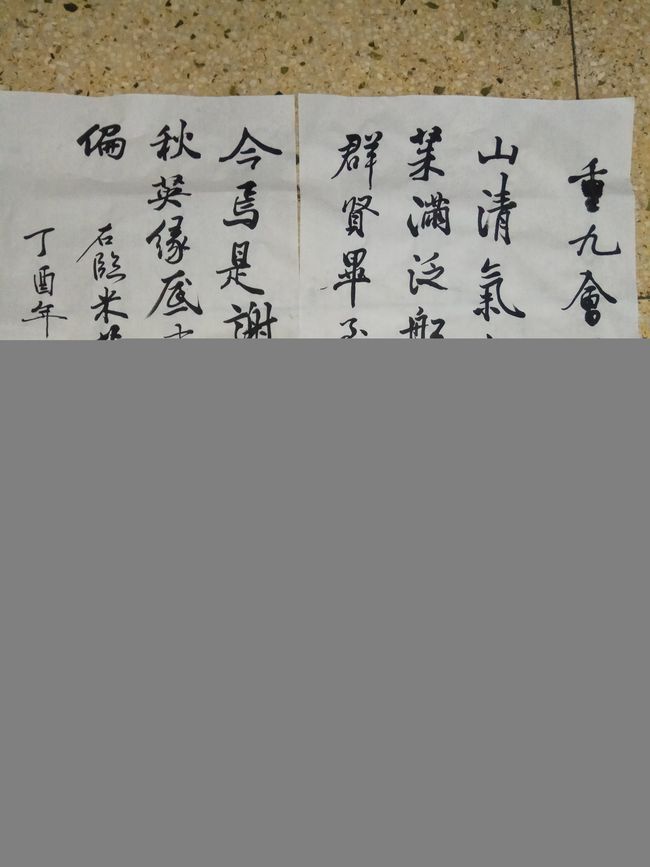 重九會
山清氣
茱滿泛船
群賢畢至
今焉是謝
秋英緣底
偏
右臨米
丁酉年